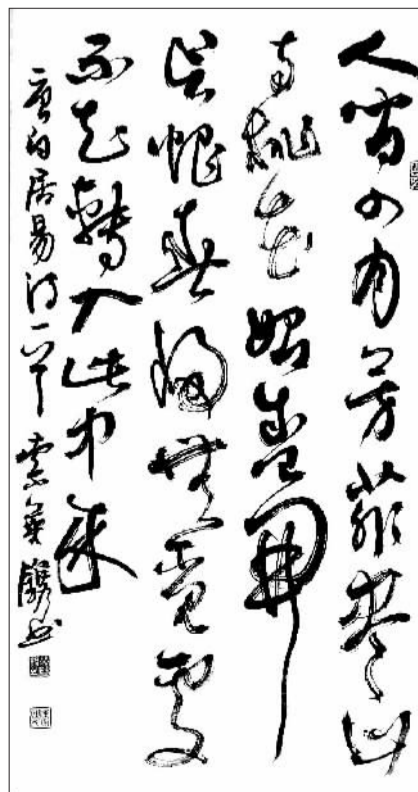 人間四月芳菲盡山
寺桃花始盛開
長恨春歸無覓處
不知轉入此中來
唐白居易詩一首